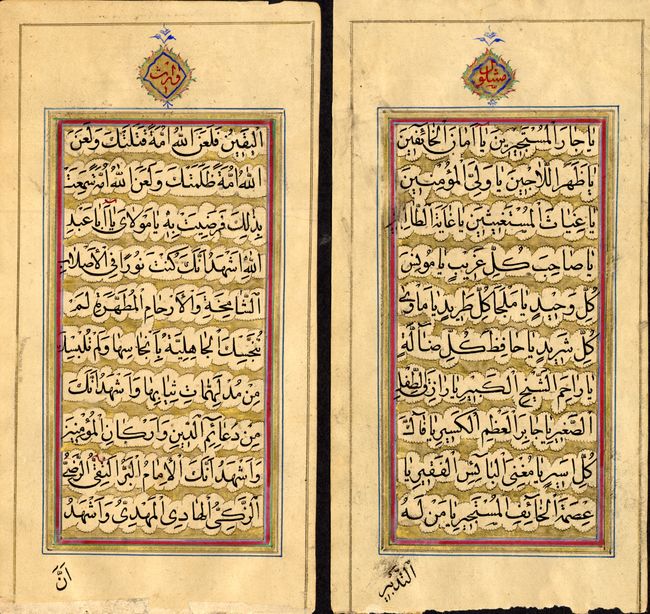 مشلول
يَا جَارَ الْمُسْتَجِيرِينَ يَا اَمَانَ الْخَائِفِينَ
يَا ظَهْرَ اللَّاجِينَ يَا وَلِيَّ الْمُؤْمِنِينَ
يَا غِيَاثَ الْمُسْتَغِيثِينَ يَا غَايَةَ الطَّالِبِينَ
يَا صَاحِبَ كُلِّ غَرِيبٍ يَا مُونِسَ
كُلِّ وَحِيدٍ يَا مَلْجَأَ كُلِّ طَرِيدٍ يَا مَاْوٰى
كُلِّ شَرِيدٍ يَا حَافِظَ كُلِّ ضَآلَّةٍ
يَا رَاحِمَ الشَّيْخِ الْكَبِيرِ يَا رَازِقَ الطِّفْلِ
الصَّغِيرِ يَا جَابِرَ الْعَظْمِ الْكَسِيرِ يَا فَاكَّ
كُلِّ اَسِيرٍ يَا مُغْنِيَ الْبَائِسِ الْفَقِيرِ يَا
عِصْمَةَ الْخَائِفِ الْمُسْتَجِيرِ يَا مَنْ لَهُ
التَّدْبِيرُ
وارث
الْيَقِينُ فَلَعَنَ اللهُ اُمَّةً قَتَلَتْكَ وَلَعَنَ
اللهُ اُمَّةً ظَلَمَتْكَ وَلَعَنَ اللهُ اُمَّةً سَمِعَتْ
بِذٰلِكَ فَرَضِيَتْ بِهِ يَا مَوْلَايَ يَا اَبَا عَبْدِ
اللهِ اَشْهَدُ اَنَّكَ كُنْتَ نُورًا فِي الْاَصْلَابِ
الشَّامِخَةِ وَالْاَرْحَامِ الْمُطَهَّرَةِ لَمْ
تُنَجِّسْكَ الْجَاهِلِيَّةُ بِاَنْجَاسِهَا وَلَمْ تُلْبِسْكَ
مِنْ مُدْلَهِمَّاتِ ثِيَابِهَا وَاَشْهَدُ اَنَّكَ
مِنْ دَعَائِمِ الدِّينِ وَاَرْكَانِ الْمُؤْمِنِينَ
وَاَشْهَدُ اَنَّكَ الْاِمَامُ الْبَرُّ التَّقِيُّ الرَّضِيُّ
الزَّكِيُّ الْهَادِي الْمَهْدِيُّ وَاَشْهَدُ
اَنَّ